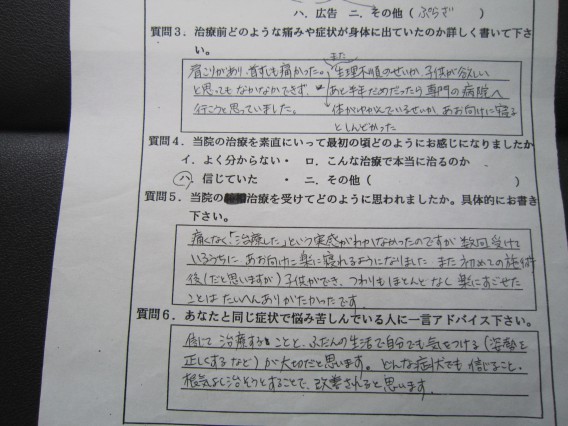 ハ．広告　ニ．その他（　ぷらざ　）
質問３．治療前どのような痛みや症状が身体に出ていたのか詳しく書いて下さ
い。
また
肩こりがあり、首すじも痛かった。生理不順のせいか、子供が欲しい
と思ってもなかなかできず。あと半年だめだったら専門の病院へ
行こうと思っていました。体がゆがんでいるせいか、あお向けに寝る
としんどかった
質問４．当院の治療を素直にいって最初の頃どのようにお感じになりましたか
イ．よく分からない・　ロ．こんな治療で本当に治るのか
ハ．信じていた　・　ニ．その他（　　　　　　　　　）
質問５．当院の治療を受けてどのように思われましたか。具体的にお書き
下さい。
痛くなく、「治療した」という実感がわかなかったのですが数回受けて
いるうちに、あお向けに楽に寝れるようになりました。また初めての施術
後（だと思いますが）子供ができ、つわりもほとんどなく楽にすごせた
ことはたいへんありがたかったです。
質問６．あなたと同じ症状で悩み苦しんでいる人に一言アドバイス下さい。
信じて治療することと、ふだんの生活で自分でも気をつける（姿勢を
正しくするなど）が大切だと思います。どんな症状でも信じること、
根気よく治そうとすることで、改善されると思います。